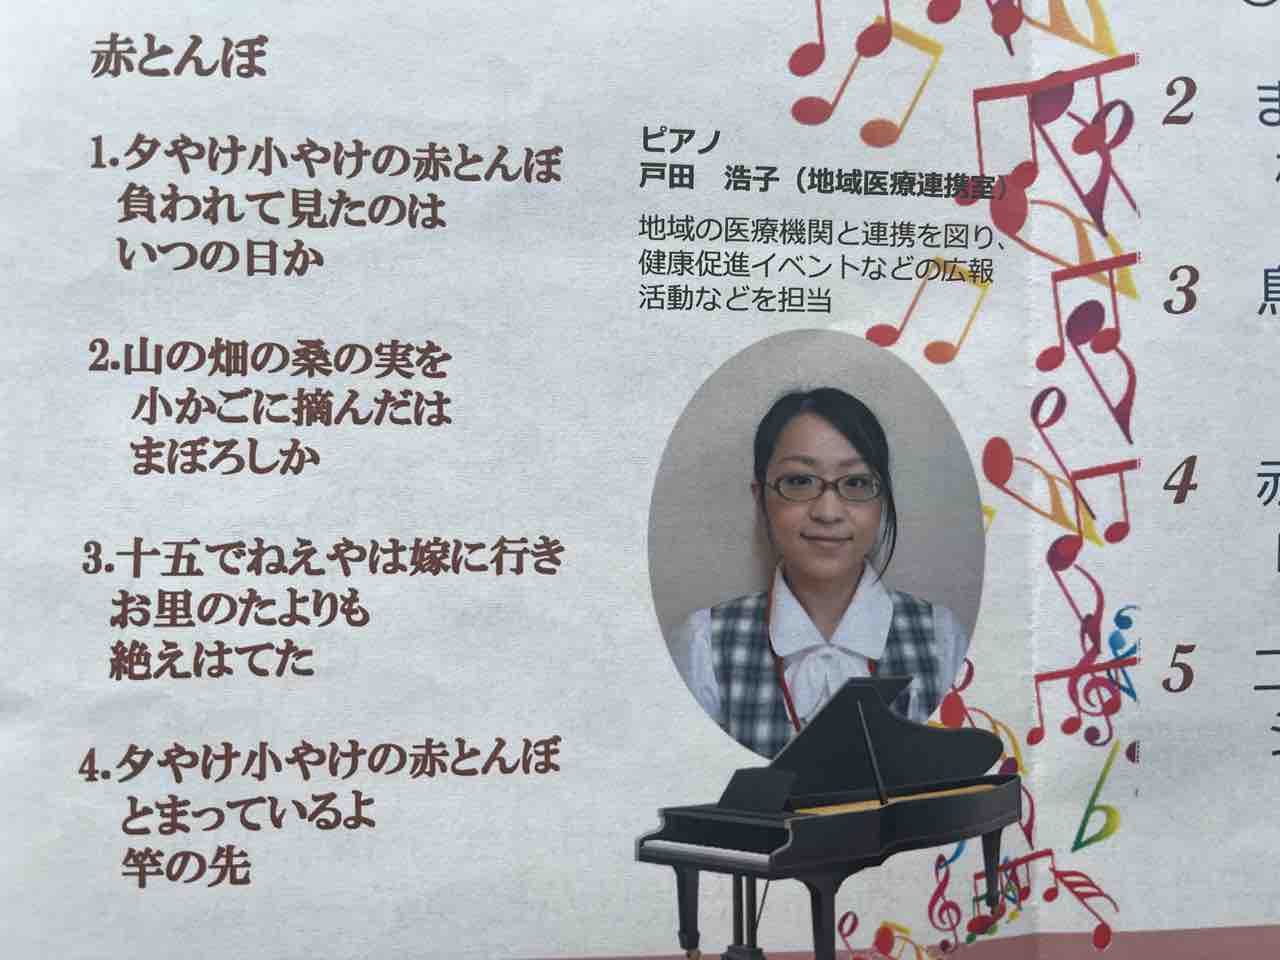 赤とんぼ
1.夕やけ小やけの赤とんぼ
負われて見たのは
いつの日か
2.山の畑の桑の実を
小かごに摘んだは
まぼろしか
3.十五でねえやは嫁に行き
お里のたよりも
絶えはてた
4.夕やけ小やけの赤とんぼ
とまっているよ
竿の先
ピアノ
戸田　浩子（地域医療連携室）
地域の医療機関と連携を図り、
健康促進イベントなどの広報
活動などを担当
2
3
4
5